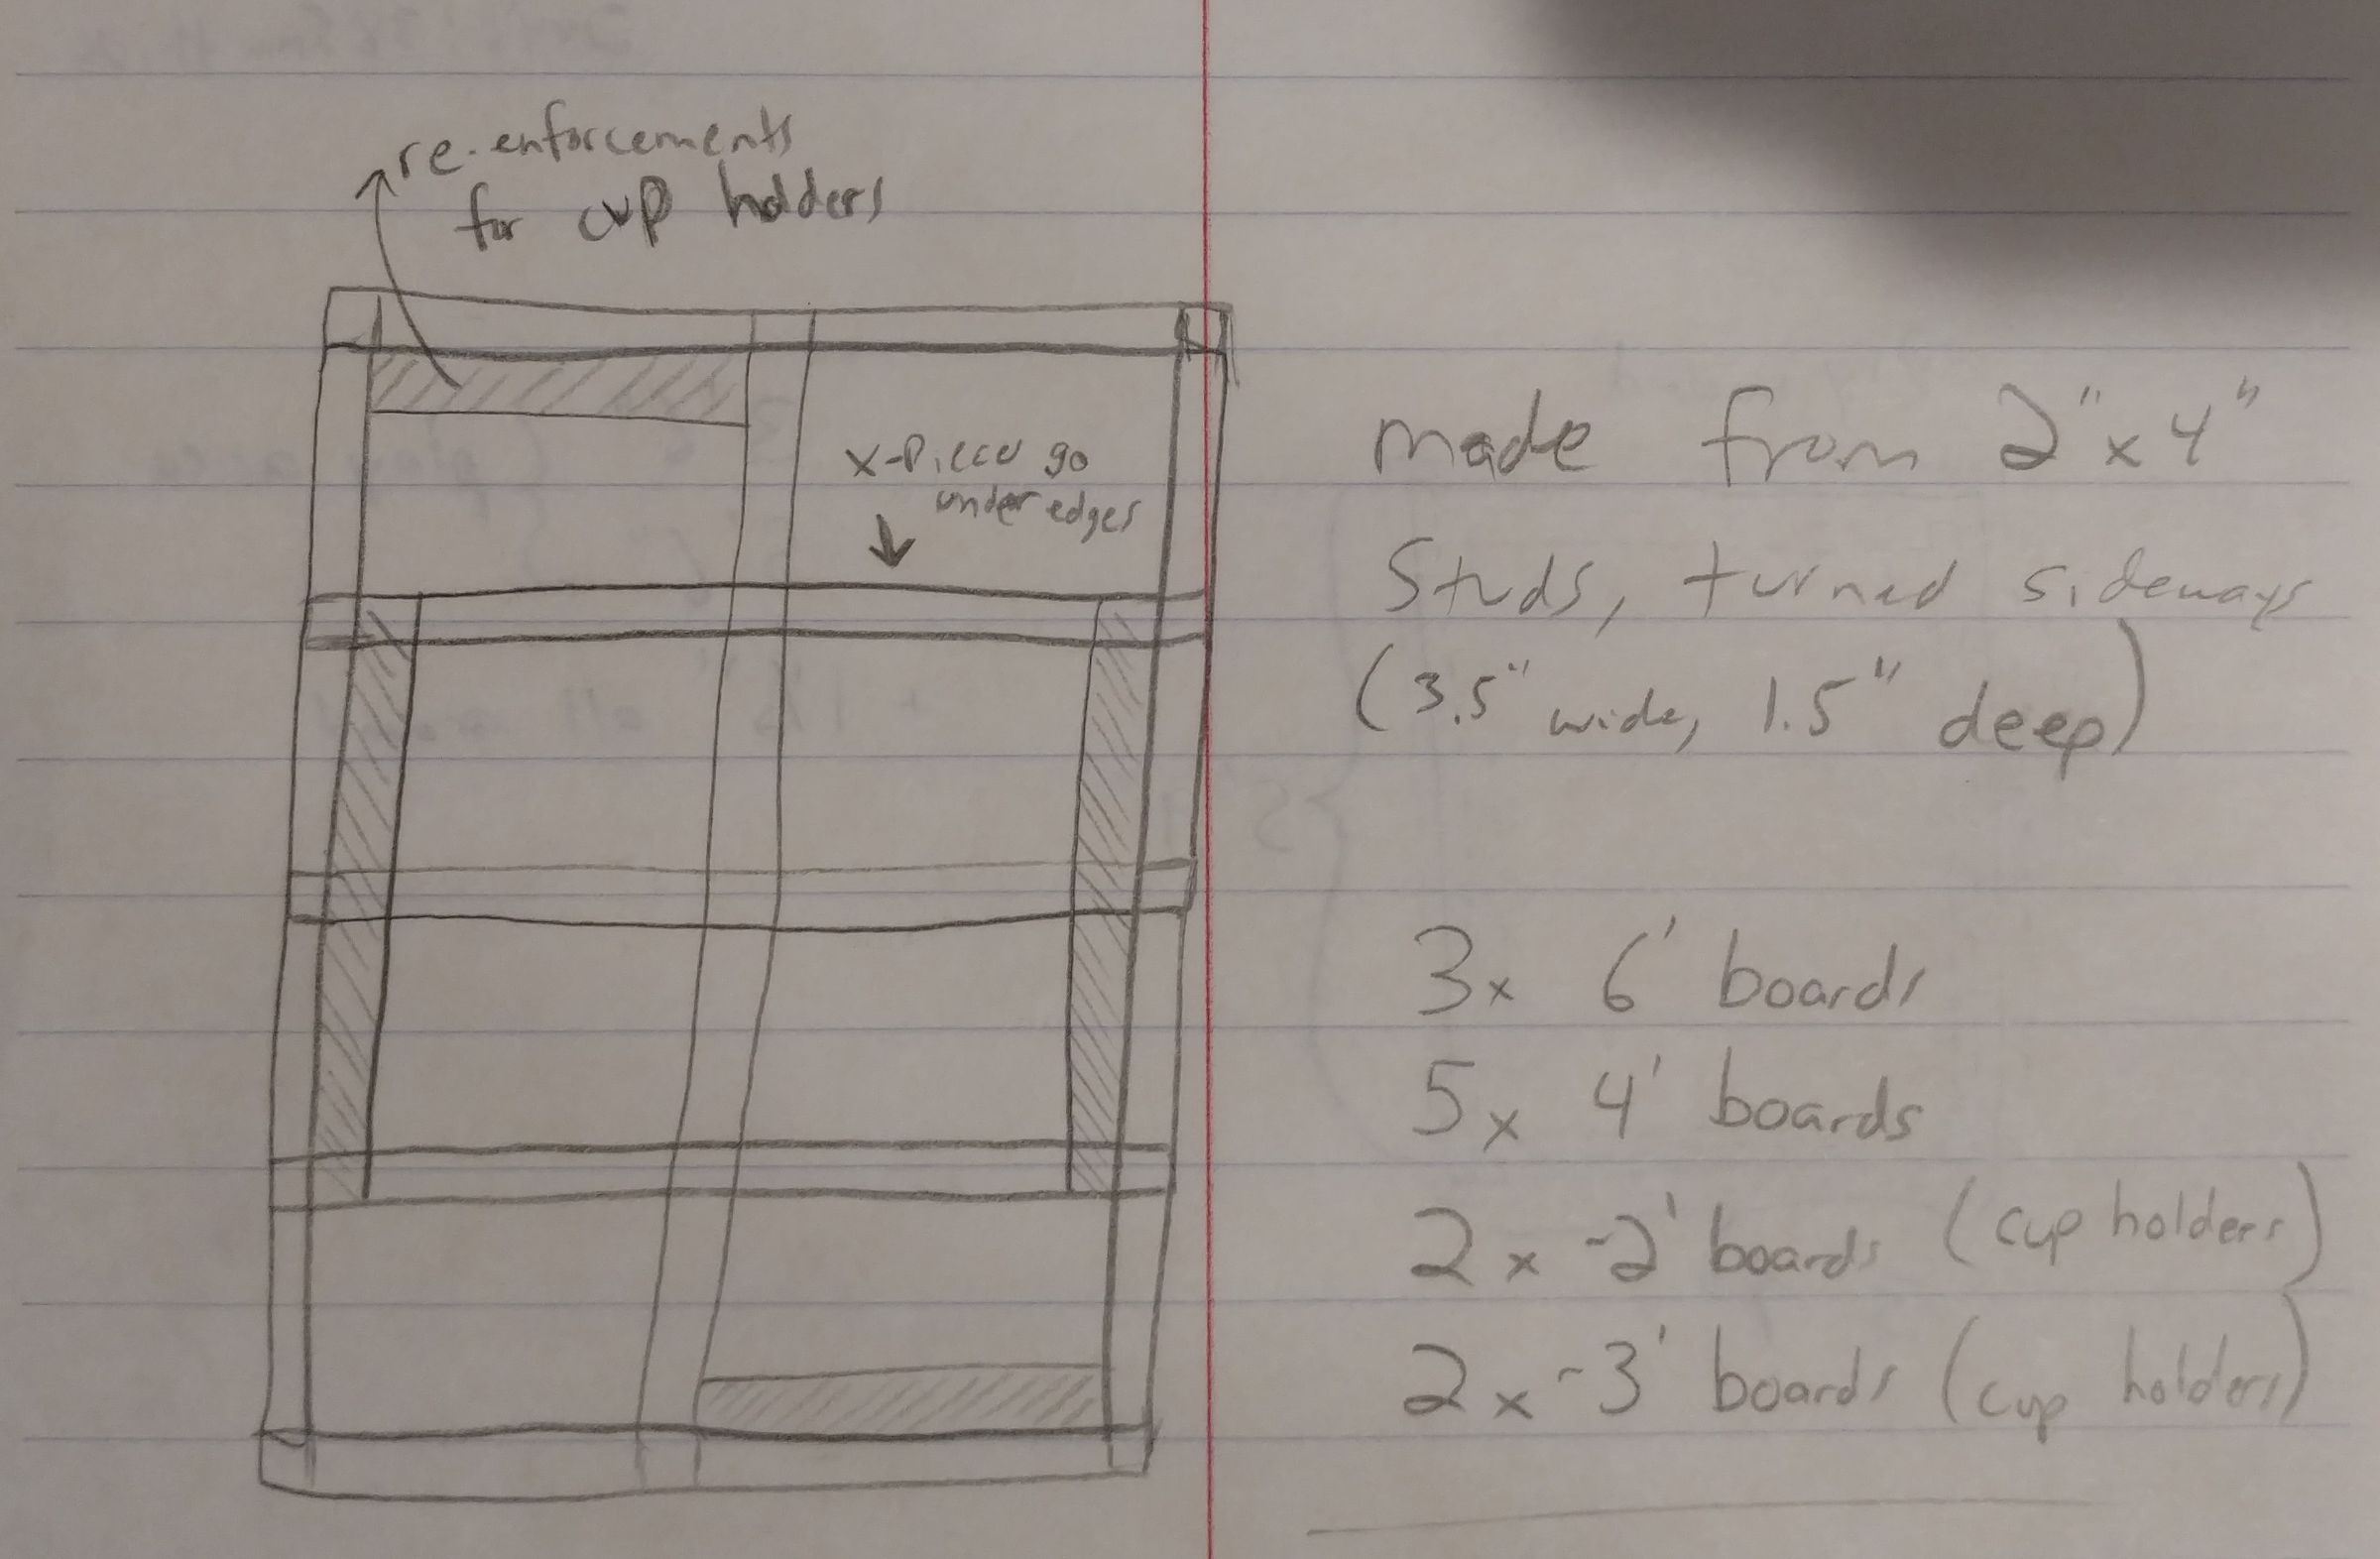 re-enforcements
for cup holders
x-pieces go
under edges
made from 2" x 4"
Studs, turned sideways
(3.5" wide, 1.5" deep)
3x 6' boards
5x 4' boards
2x ~2' boards (cup holders)
2x ~3' boards (cup holders)